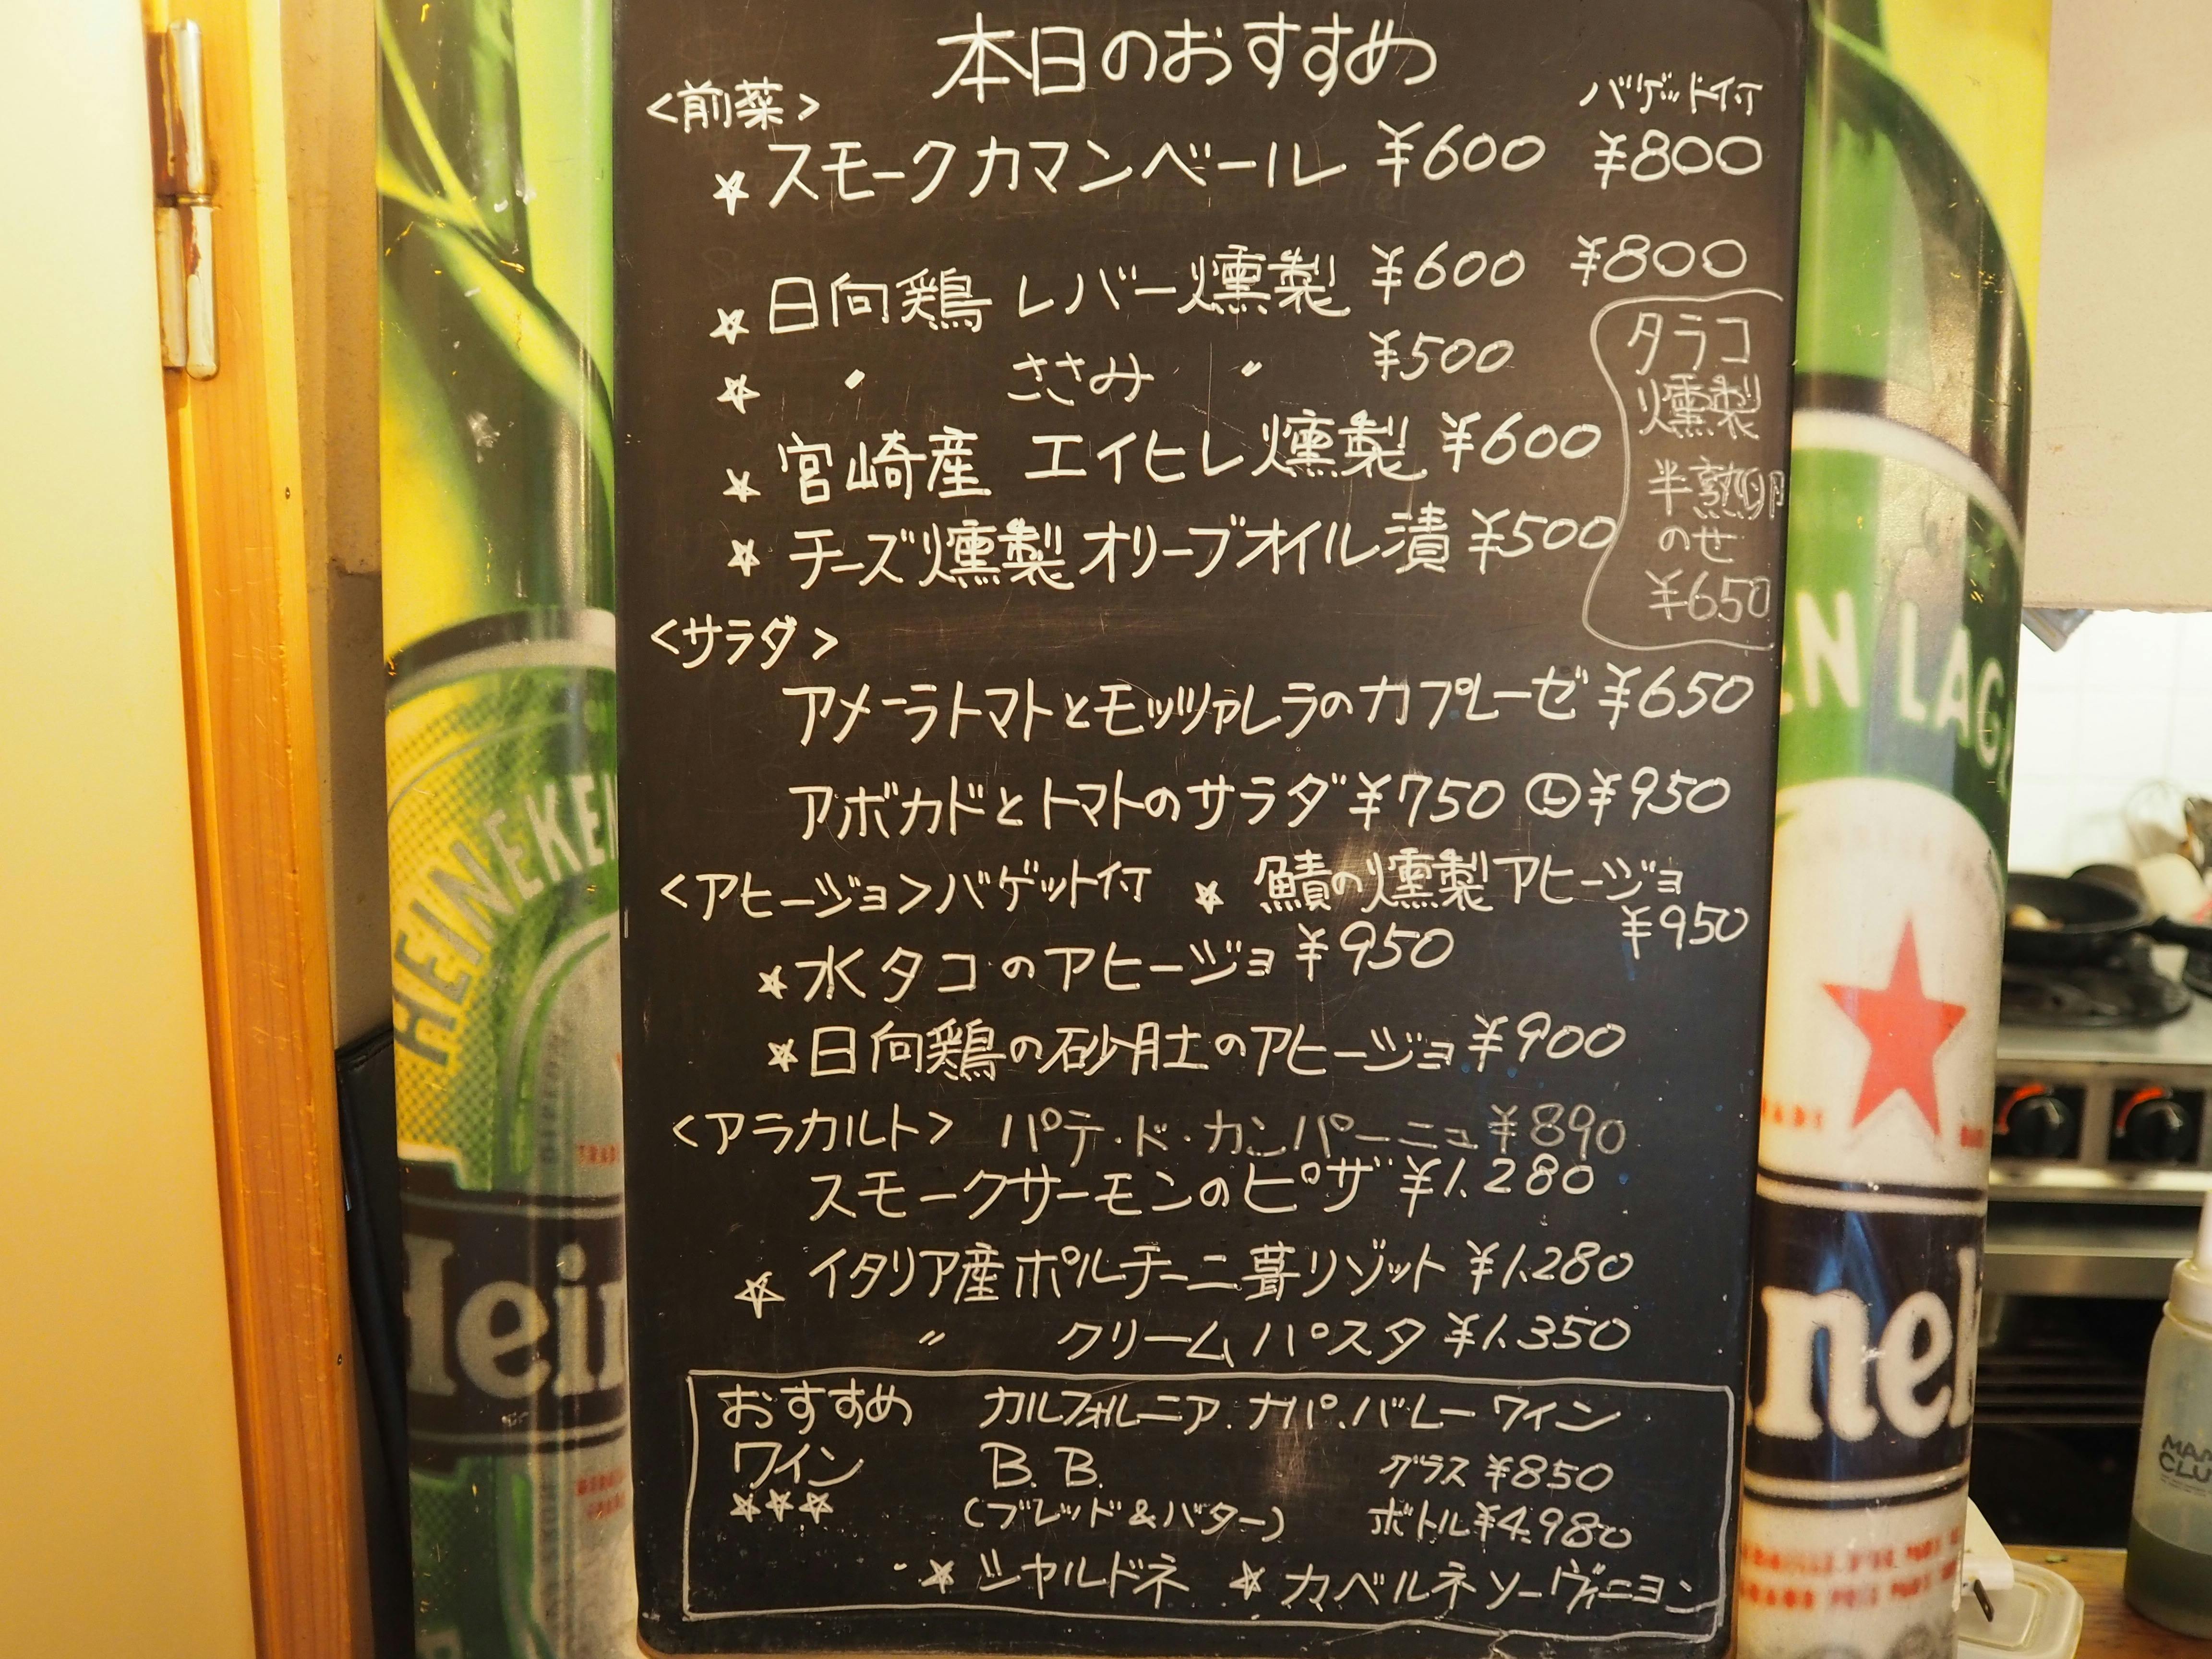 本日のおすすめ
<前菜>
バゲット付
☆スモークカマンベール ¥600 ¥800
☆日向鶏 レバー燻製 ¥600 ¥800
☆ 〃 ささみ 〃 ¥500
☆宮崎産 エイヒレ燻製 ¥600
☆チーズ燻製オリーブオイル漬 ¥500
タラコ
燻製
半熟卵
のせ
¥650
<サラダ>
アメーラトマトとモッツァレラのカプレーゼ ¥650
アボカドとトマトのサラダ ¥750 Ⓛ¥950
<アヒージョ>バゲット付 ☆鯖の燻製アヒージョ
¥950
☆水タコのアヒージョ ¥950
☆日向鶏の砂肝のアヒージョ ¥900
<アラカルト> パテ・ド・カンパーニュ ¥890
スモークサーモンのピザ ¥1.280
☆イタリア産ポルチーニ茸リゾット ¥1.280
〃 クリームパスタ ¥1.350
おすすめ カルフォルニア.ナパ.バレーワイン
ワイン B.B. グラス ¥850
☆☆☆ (ブレッド&バター) ボトル¥4.980
☆シャルドネ ☆カベルネソーヴィニヨン
HEINEKEN
Hein
EN LAG
nek
MAR
CLU